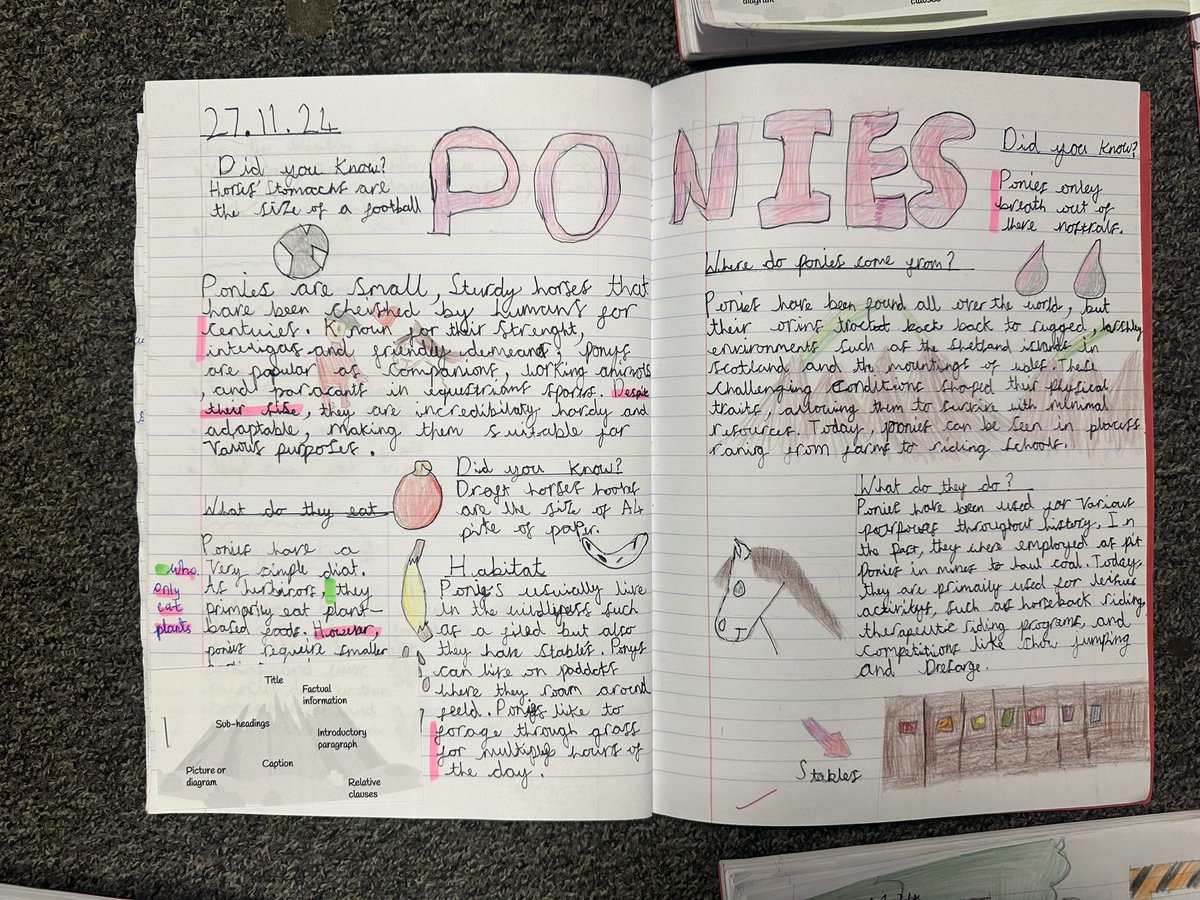 27.11.24
PONIES
Did you know?
Horses' Stomachs are
the size of a football
Ponies are small, Sturdy horses that
have been cherished by humans for
centuies. Known for their Strenght,
and friendly demeanor, ponys
are popular as companions, working animals
, and in equestriant sports. Despite
their size, they are incredibilaty hardy and
adaptable, making them suitable for
Various purposes.
Did you know?
Draft horses hoobs
are the size of A4
pite of paper.
What do they eat
Ponies have a
Very simple diat.
As hurbivors, they
who
only
eat
plants
primarily eat plant-
based foods. However,
ponies require smaller
Habitat
Ponies usually live
in the such
as a filed but also
they have stables. Ponys
can live on paddocts
where they roam around
feeld. Ponies like to
forage through grass
for multiply hours of
the day.
Title
Factual
information
Sub-headings
Introductory
paragraph
Caption
Picture or
diagram
Relative
clauses
Did you know?
Ponies onley
breath out of
there nostrals.
Where do ponies come from?
Ponies have been found all over the world, but
their orins back back to rugged,
environments such as the shetland islands in
scotland and the mountings of wals. These
challenging conditions shaped their physical
traits, allowing them to survive with minimal
resources. Today, ponies can be seen in placuss
raning from farms to riding schools.
What do they do?
Ponies have been used for Various
throughout history. In
the past, they where employed as pit
ponies in mines to haul coal. Today,
they are primaily used for
activitys, such as horseback riding,
therapeutic riding programs, and
competitions like show jumping
and
Stables
diagram
clauses